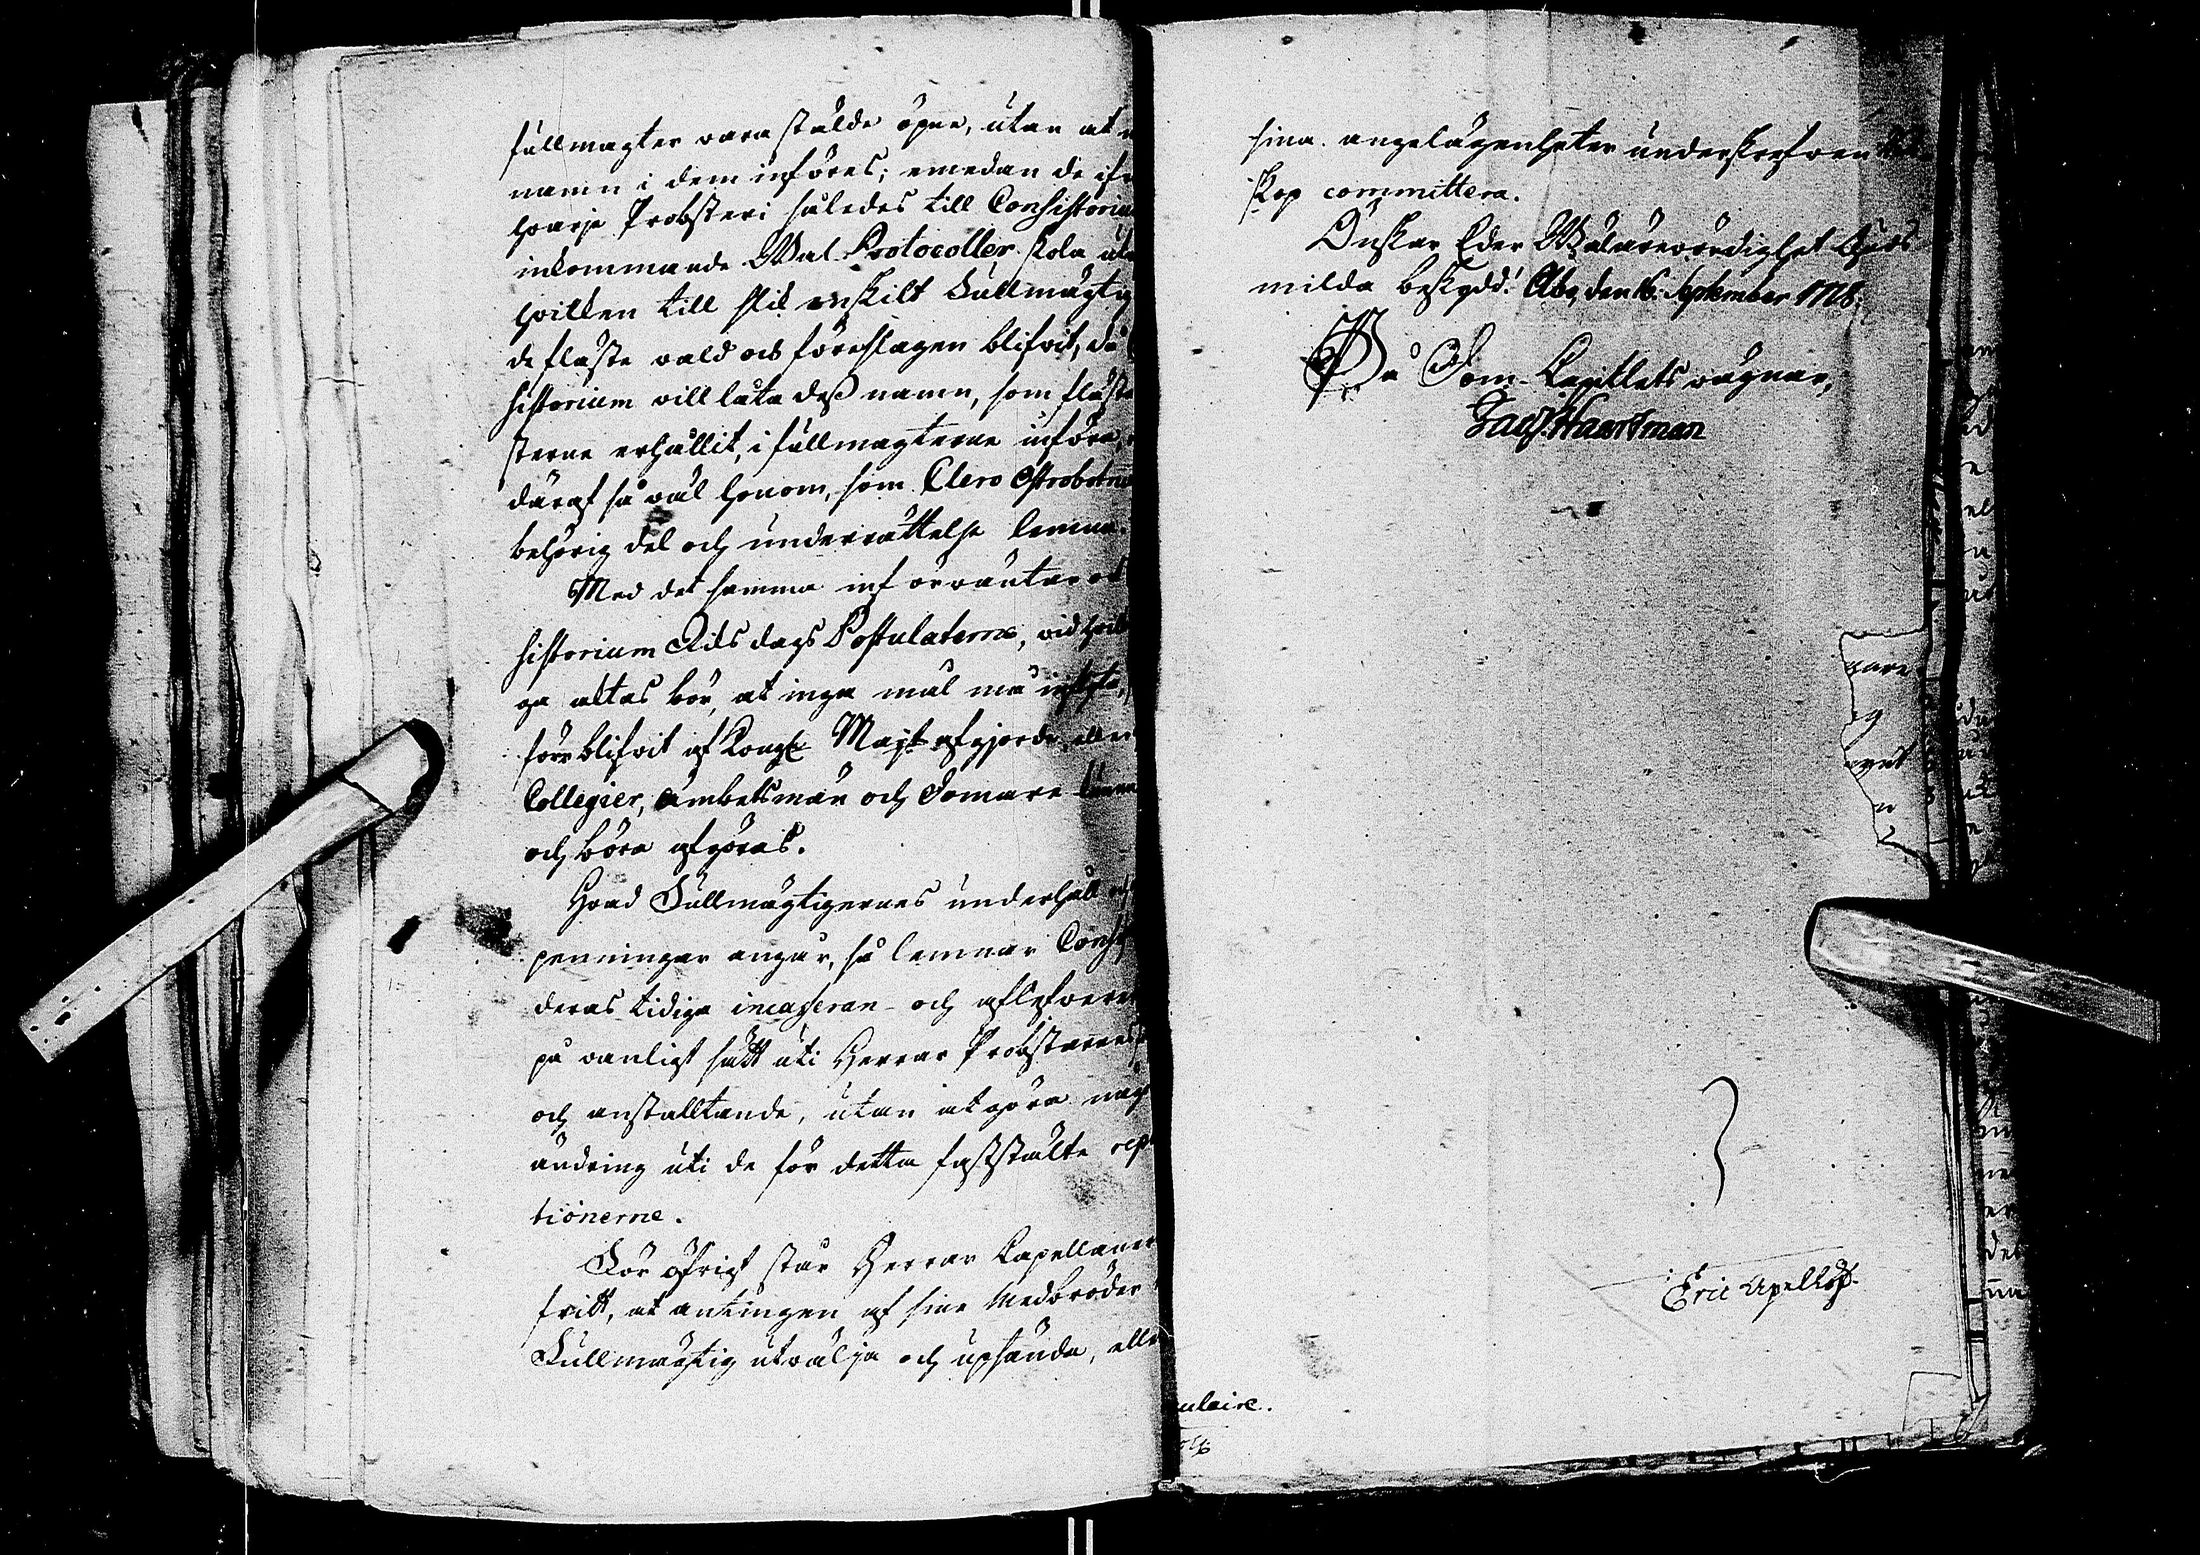 fullmagter vara stälde öpne, utan at
namn i dem införes; emedan de ifr
hvarje Probsteri således till Consistorium
inkommande Wal Protocoller skola ut
hvilken till slik enskilt Fullmägtig
de flaste vald och föreslagen blifvit, då
sistorium vill låta dess namn, som flaste
sterne erhållit, i fullmagterne införa,
däraf så väl honom, som Clero Ostrobotn
behörig del och underrättelse lemna.
Med det samma inf örväntar
sistorium Riksdags Postulaterne, vid hvil
ga aktas bör, at inga mål må
förr blifvit af Kongl Majt afgjorde, eller
Collegier, Ämbetsmän och Domare kunna
och böra afgöras.
Hvad Fullmägtigernes underhåll
penningar angår, så lemnar Consis
deras tidiga incasseran- och aflefvere
på vanligt sätt uti Herrar Probstarnes
och anstalltande, utan at göra någ
ändring uti de för detta faststälte rep
tionerne.
För öfrigt står Herrar Capellaner
fritt, at antingen af sine Medbröder
Fullmägtig utvälja och upsända, elle
sina angelägenheter underskrefven
skop committera.
Önskar Eder Wälärevördighet Guds
milda beskydd! Åbo, den 16. September 1778.
På Dom-Capitlets vägnar,
Jac. Haartman
Eric Apelhof.
ulaire.